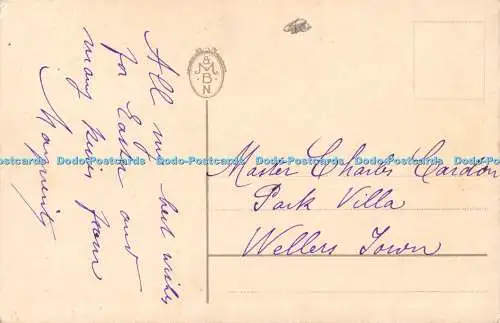 All my best wishes
for Easter and
many kisses from
M & M
B
N
Master Charles Cardon
Park Villa
Wellers Town
Dodo-Postcards Dodo-Postcards Dodo-Postcards Dodo-Postcards Dodo-Postcards